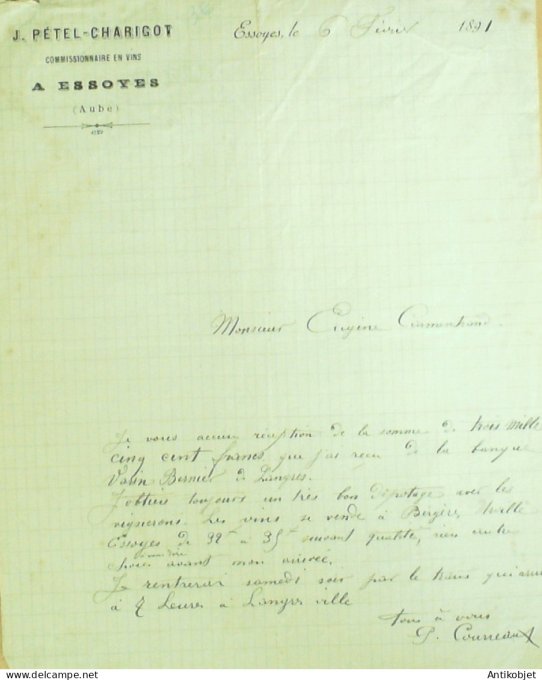 J. PÉTEL-CHARIGOT
COMMISSIONNAIRE EN VINS
A ESSOYES
(Aube)
Essoyes, le 6 Févrir 1891
Monsieur Eugène
Je vous accuse réception de la somme de trois mille
cinq cent francs que j'ai reçu de la banque
Varin Bernier de Langres.
J'obtiens toujours un très bon dépotage avec les
vignerons. Les vins se vende à Bergères, Ville
Essoyes de à 35f suivant qualité, rien
avant mon arrivée.
Je rentrerai samedi soir par le train qui
à heures à Langres ville
tous à vous
P. Courreaux
Antikobjet